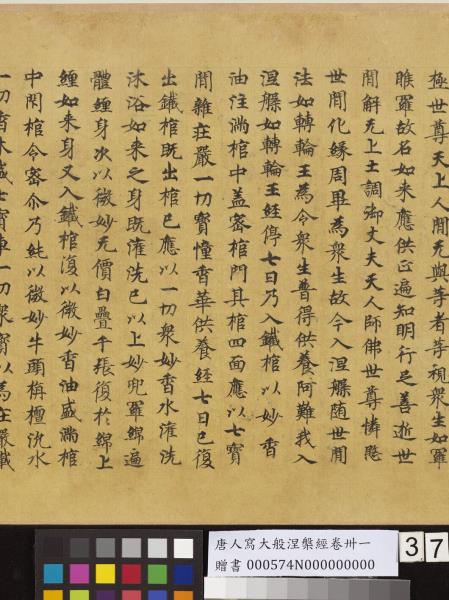 極世尊天上人間无與等者等視衆生如羅
睺羅故名如来應供正遍知明行足善逝世
間解无上士調御丈夫天人師佛世尊憐愍
世間化縁周畢為衆生故今入涅槃随世間
法如轉輪王為令衆生普得供養阿難我入
涅槃如轉輪王經停七日乃入鐵棺以妙香
油注滿棺中盖密棺門其棺四面應以七寶
間雜莊嚴一切寳幢香華供養經七日已復
出鐵棺既出棺已應以一切衆妙香水灌洗
沐浴如来之身既灌洗已以上妙兜羅綿遍
體纏身次以微妙无價白疊千張復於綿上
纏如来身又入鐵棺復以微妙香油盛滿棺
中閇棺令密尒乃純以微妙牛頭栴檀沉水
一切香木盛七寳車一切衆寳以為莊嚴載
唐人寫大般涅槃經卷卅一
贈書 000574N000000000
37